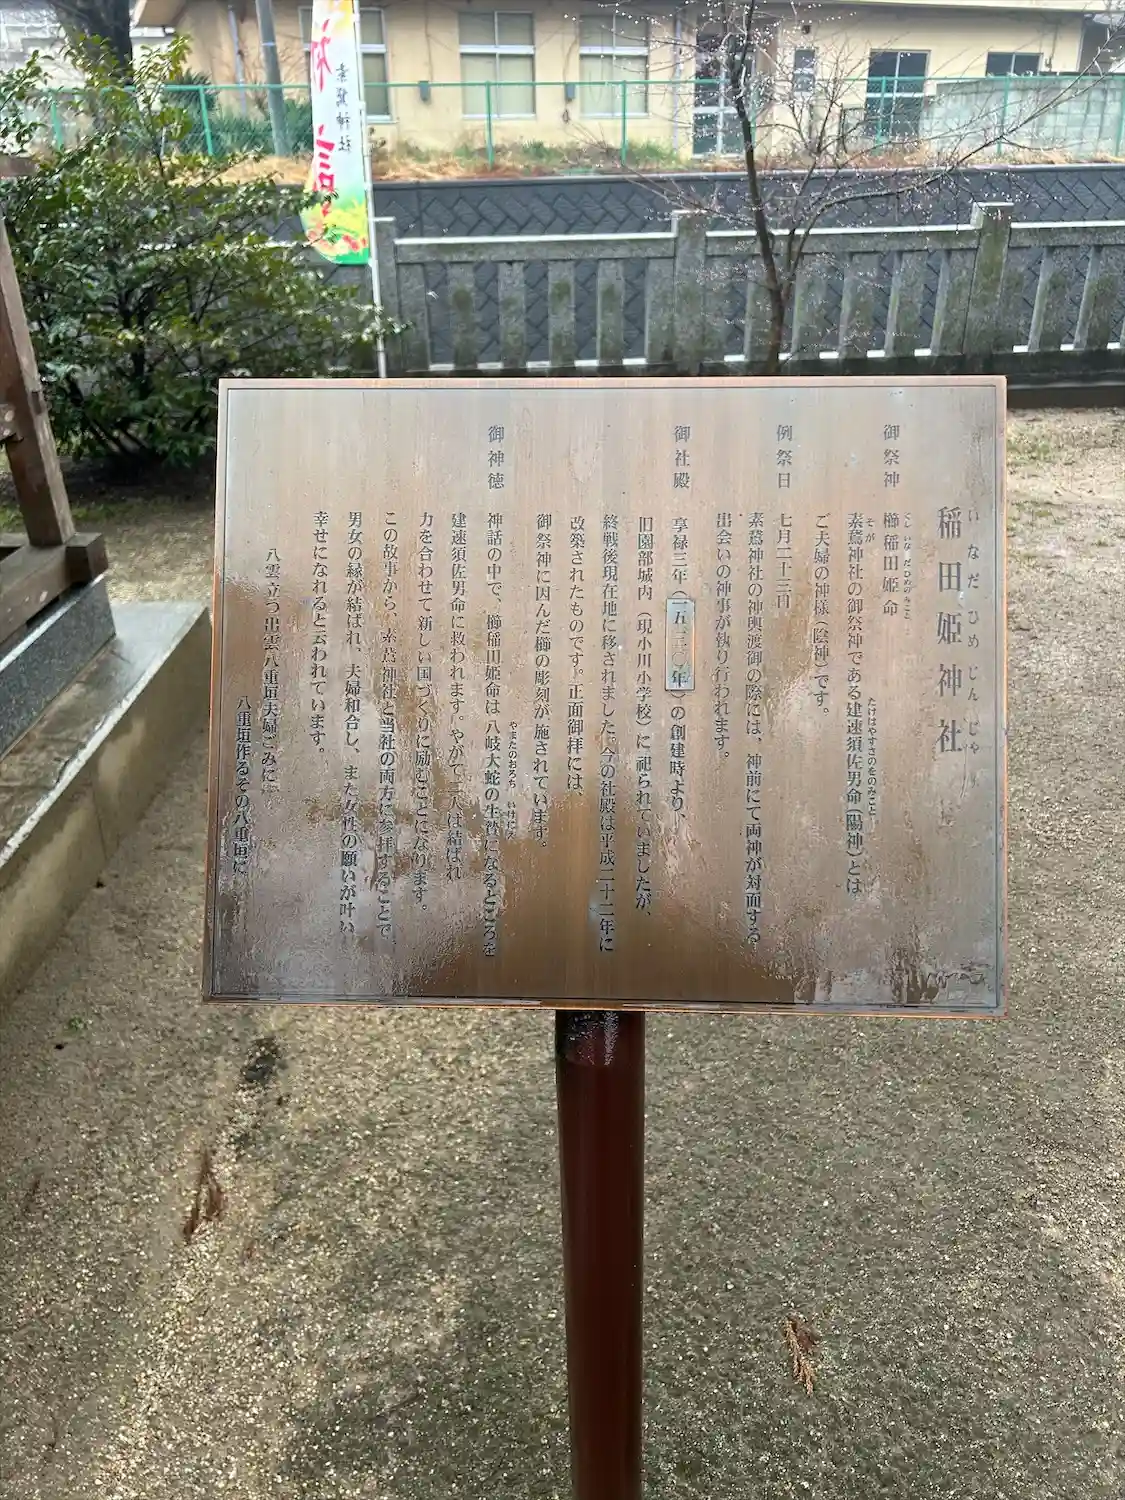 神詣
素鵞神社
稲田姫神社
いなだひめじんじゃ
御祭神 櫛稲田姫命
くしいなだひめのみこと
素鵞神社の御祭神である建速須佐男命(陽神)とは
そが
たけはやすさのをのみこと
ご夫婦の神様(陰神)です。
例祭日 七月二十三日
素鵞神社の神輿渡御の際には、神前にて両神が対面する
出会いの神事が執り行われます。
御社殿 享禄三年(一五三〇年)の創建時より、
旧園部城内(現小川小学校)に祀られていましたが、
終戦後現在地に移されました。今の社殿は平成二十二年に
改築されたものです。正面御拝には、
御祭神に因んだ櫛の彫刻が施されています。
御神徳 神話の中で、櫛稲田姫命は八岐大蛇の生贄になるところを
やまたのおろち いけにえ
建速須佐男命に救われます。やがて二人は結ばれ
力を合わせて新しい国づくりに励むことになります。
この故事から、素鵞神社と当社の両方に参拝することで、
男女の縁が結ばれ、夫婦和合し、また女性の願いが叶い、
幸せになれると云われています。
八雲立つ出雲八重垣夫婦ごみに
八重垣作るその八重垣に